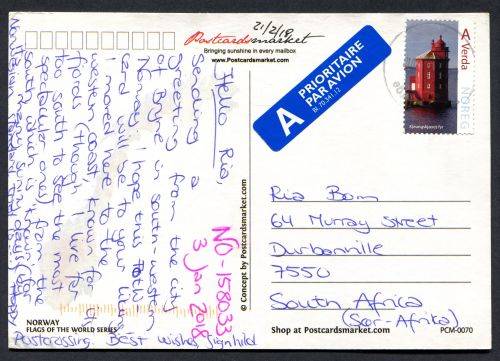 21/2/18
Postcardsmarket
Bringing sunshine in every mailbox
www.Postcardsmarket.com
A PRIORITAIRE
PAR AVION
Bl. 70.341.12
A Verda
NOREG
Kjeungskjæret fyr
Hello Ria,
Sending a
greeting from the city
of Bryne in southwestern
Norway. I hope this
card will be to your
I moved here to the
western coast
fjords though
too south to see the most
spectacular ones from the
south
Norwegian standard) days!
Happy
Postcrossing. Best wishes Signhild
NO-158433
3 Jan 2018
© Concept by Postcardsmarket.com
Ria Bom
64 Murray Street
Durbanville
7550
South Africa
(Sør-Afrika)
NORWAY
FLAGS OF THE WORLD SERIES
Shop at Postcardsmarket.com
PCM-0070